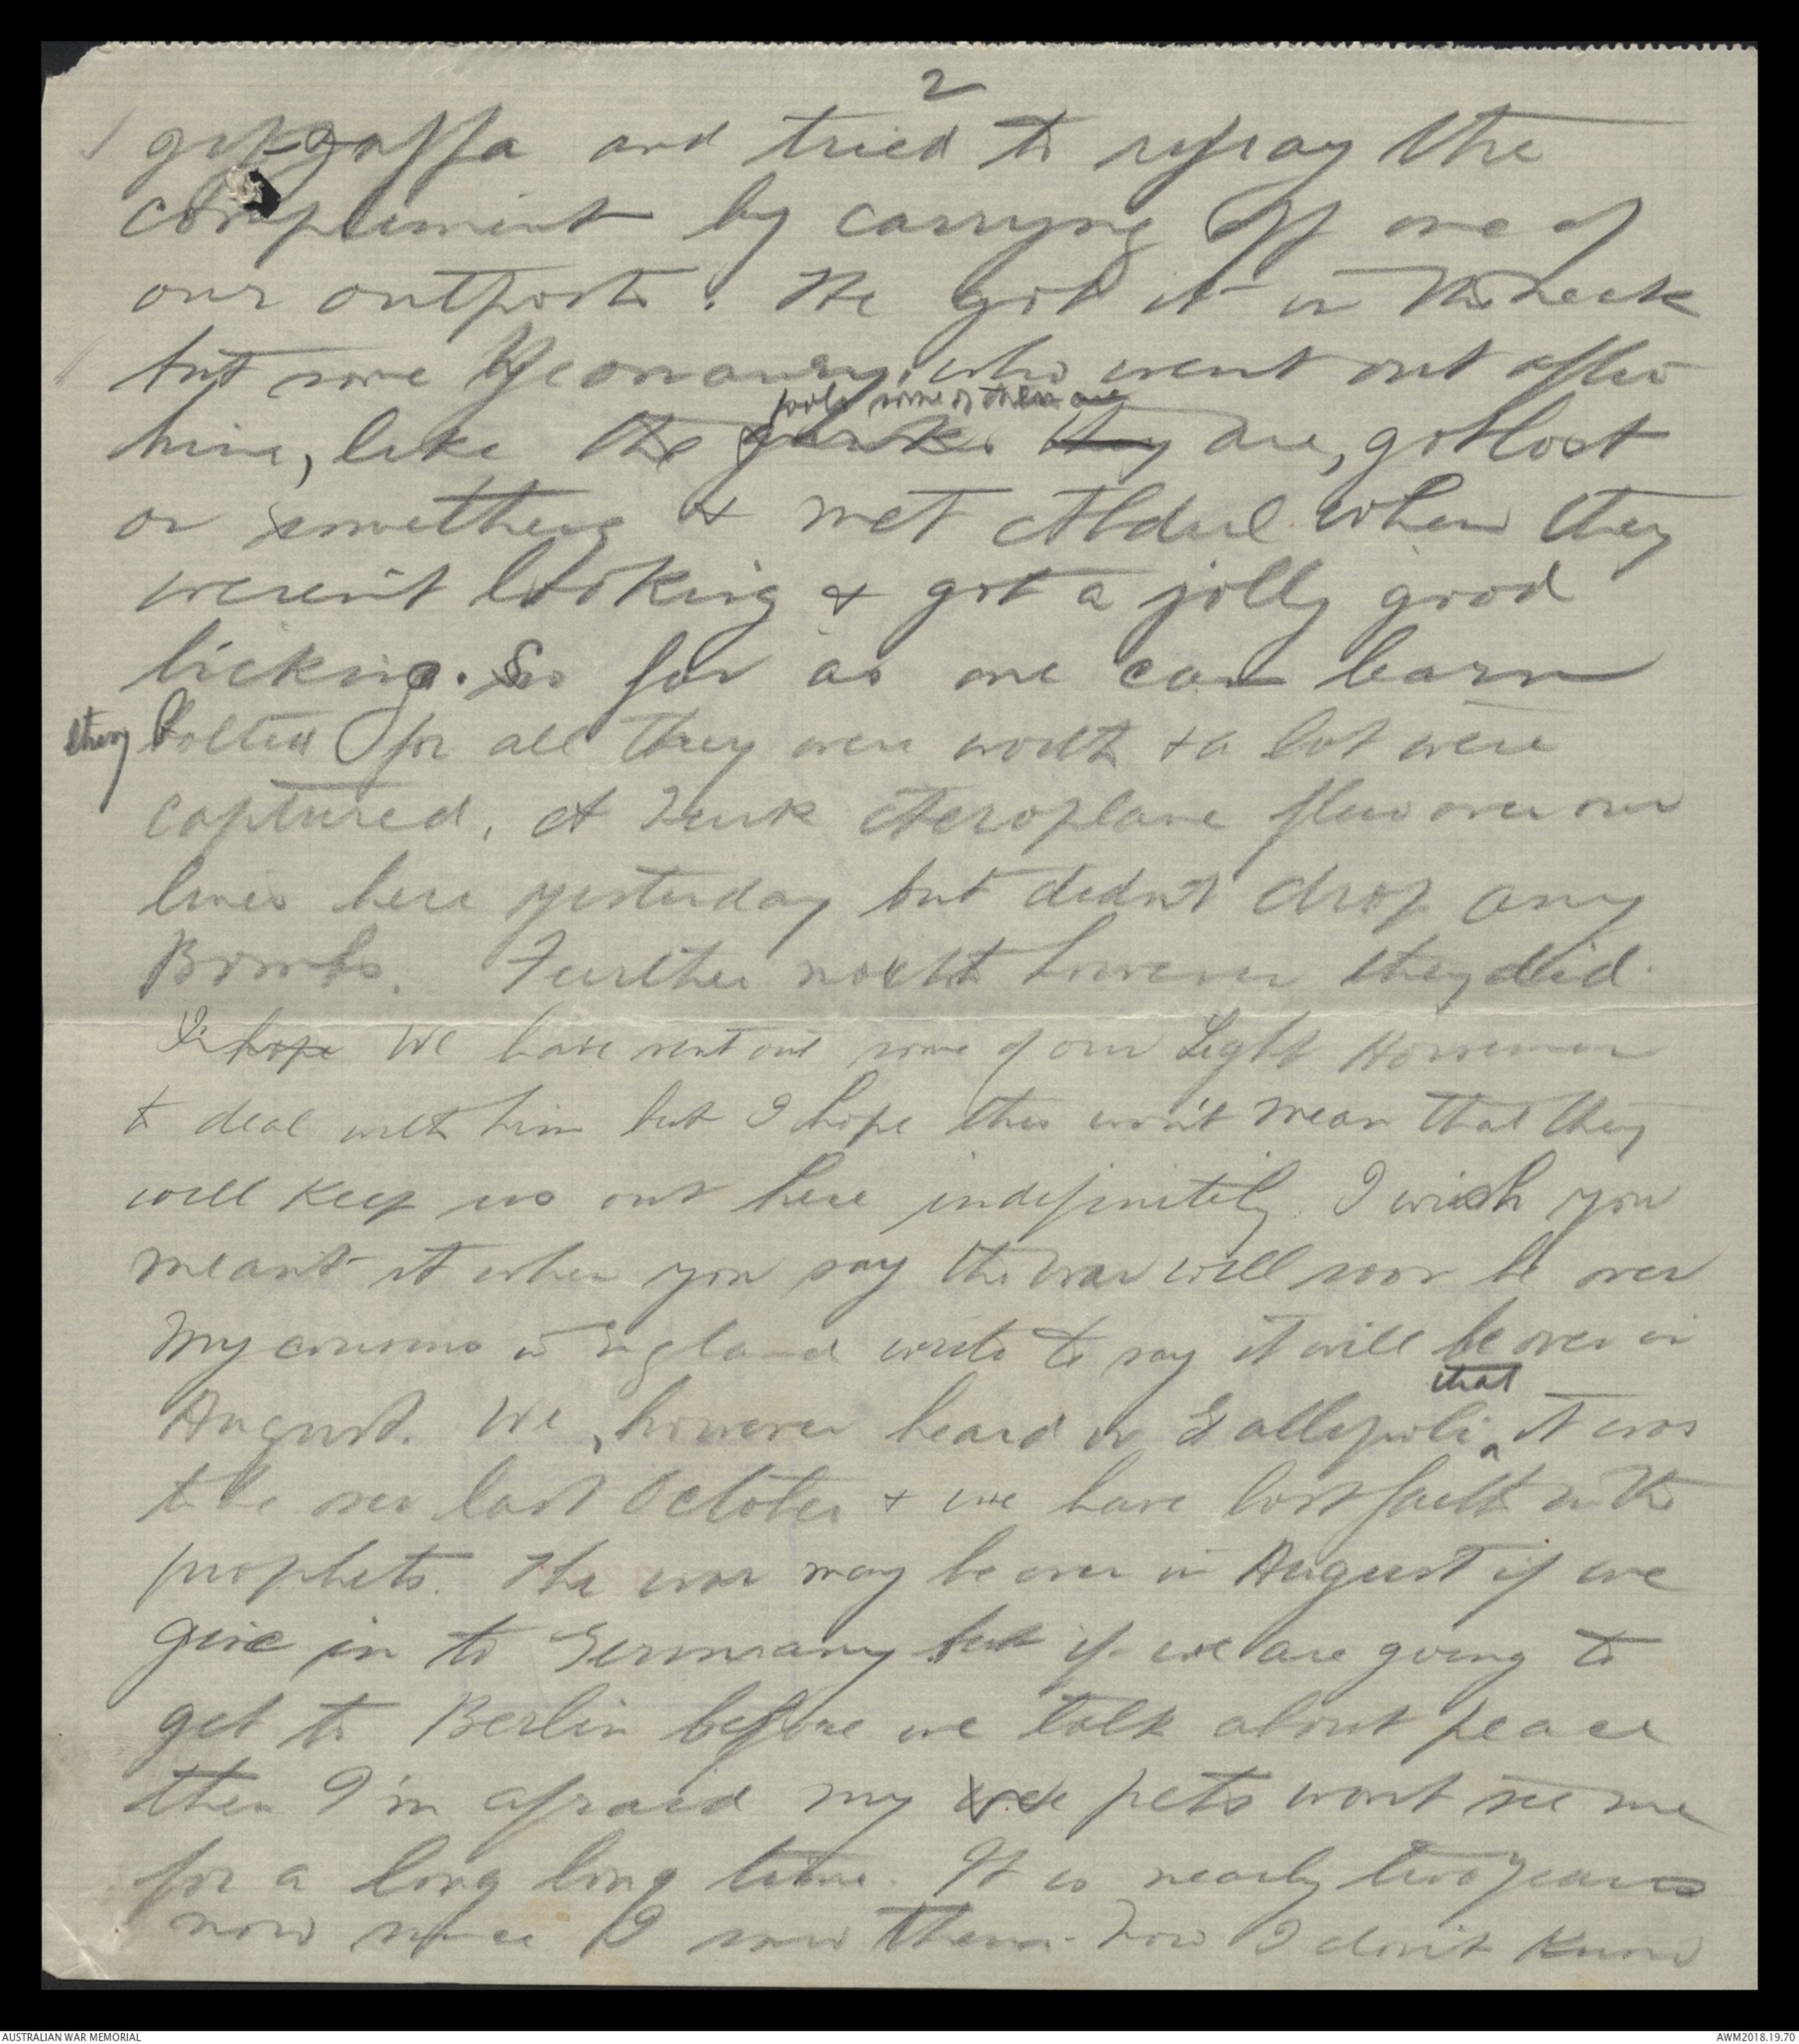 2
gifgaffa and tried to repay the
compliment by carrying off one of
our outposts. He got it in the neck
but some Yeomanry, who went out after
fools some of them are
him, like the they are, got lost
or something & met Abdul when they
weren't looking & got a jolly good
licking. So far as one can learn
they bolted for all they were worth & a lot were
captured. A Turk Aeroplane flew over our
lines here yesterday but didn't drop any
Bombs. Further north however they did.
I hope We have sent out some of our Light Horsemen
to deal with him but I hope this won't mean that they
will keep us out here indefinitely. I wish you
meant it when you say the war will soon be over
My cousins in England write to say it will be over in
that
August. We, however heard on Gallipoli it was
to be over last October & we have lost faith in the
prophets. The war may be over in August if we
give in to Germany but if we are going to
get to Berlin before we talk about peace
then I'm afraid my pets wont see me
for a long long time. It is nearly two years
now since I saw them. How I don't know
AUSTRALIAN WAR MEMORIAL
AWM2018.19.70